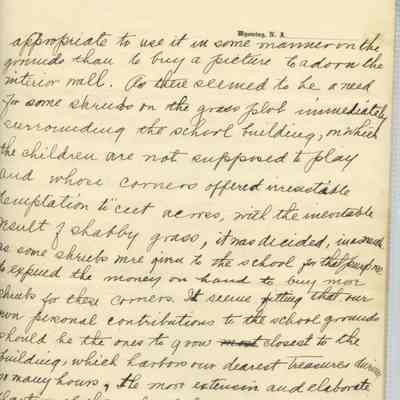 Wyoming, N. J.
appropriate to use it in some manner on the
grounds than to buy a picture to adorn the
interior wall. As there seemed to be a need
for some shrubs on the grass plot immediately
surrounding the school building, on which
the children are not supposed to play
and whose corners offered irresistable
temptation to "cut across, with the inevitable
result of shabby grass, it was decided, inasmuch
as some shrubs were given to the school for that purpose
to expend the money on hand to buy more
shrubs for these corners. It seems fitting that our
own personal contributions to the school grounds
should be the ones to grow most closest to the
building, which harbors our dearest treasures during
so many hours, the more extensive and elaborate